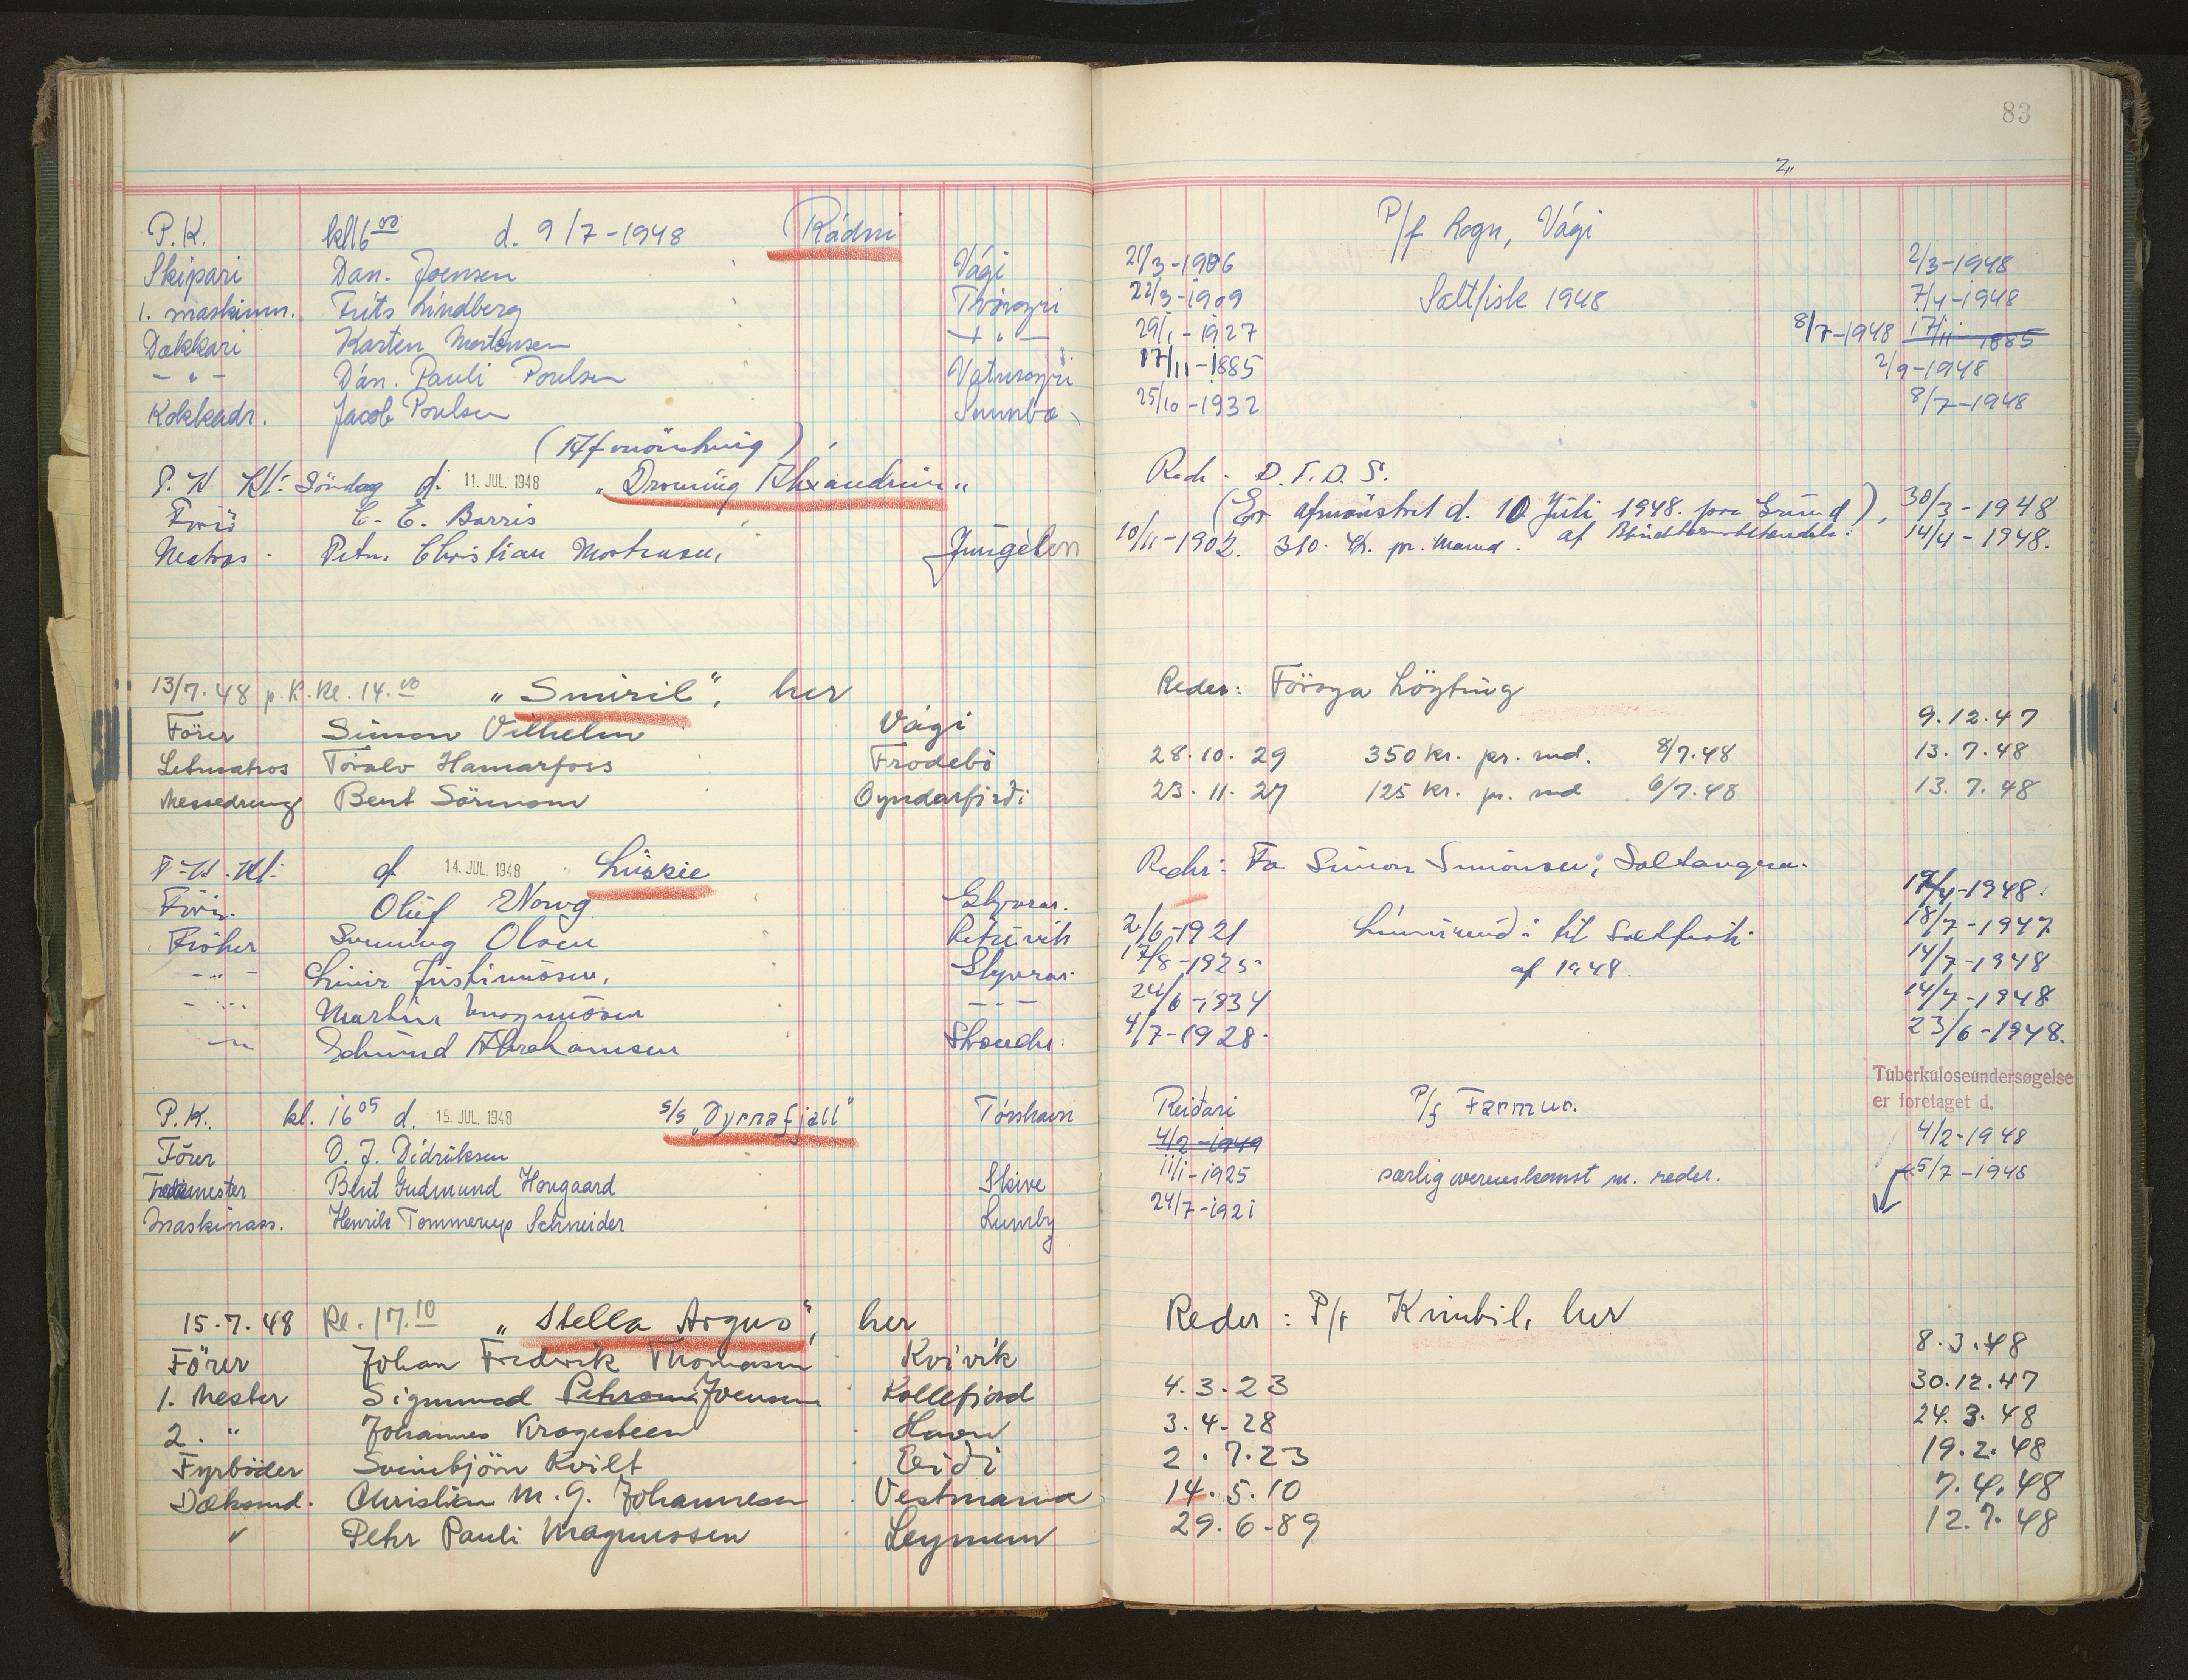 83
P.K. kl 16 00 d. 9/7-1948 Rádni P/f Rogn, Vági
Skipari Dan. Joensen Vági 21/3-1906 2/3-1948
1. maskinm. Frits Lindberg Tvöroyri 22/3-1909 Saltfisk 1948 7/4-1948
Dekkari Karsten Mortensen — " — 29/1-1927 8/7-1948 17/11-1885
— " — Dán. Pauli Poulsen Vatnsoyri 17/11-1885 2/9-1948
Kokkadr. Jacob Poulsen Sumbø 25/10-1932 8/7-1948
(Afmönstring)
P. K. Kl. Söndag d. 11. JUL. 1948 „Dronning Alexandrine" Red. D.F.D.S.
Förer C. E. Barris (Er afmönstret d. 10 Júli 1948. paa Grund), 30/3-1948
Matros Petur Christian Mortensen, 10/11-1902. 310 Kr. pr. Maaned. af 14/4-1948.
13/7.48 p.K. Kl. 14.00 „Smiril", her Reder: Föroya Lögting
Förer Simon Vilhelm Vági 9.12.47
Letmatros Toralv Hamarfoss Frodebö 28.10.29 350 kr. pr. md. 8/7.48 13.7.48
Messedreng Bent Sörensen Oyndarfirdi 23.11.27 125 kr. pr. md 6/7.48 13.7.48
P.K. Kl. d. 14. JUL. 1948 Lizzie Reder: Fa Simon Simonsen, Saltangera.
Förer. Oluf Glyvrar. -1948.
Fisker Sverning Olsen 2/6-1921 til Saltfisk 18/7-1947
— " — Glyvrar 17/8-1925 af 1948. 14/7-1948
— " — Martin Magnussen — " — 24/6-1934 14/7-1948
— " — Edmund Abrahamsen 4/7-1928. 23/6-1948.
Tuberkuloseundersøgelse
er foretaget d.
P.K. kl. 16 05 d. 15. JUL. 1948 s/s „Dyrnafjall" Tórshavn Reiðari P/f Farmur.
Förer O. J. Didriksen 4/2-1949 4/2-1948
mester Bent Gudmund Hovgaard Skive 11/1-1925 særlig overenskomst m. reder. 5/7-1948
Maskinass. Henrik Tommerup Schneider Lumby 24/7-1921
15.7.48 Kl. 17.10 „Stella Argus", her Reder: P/f Kimbil, her
Förer Johan Fredrik Thomasen Kvivik 8.3.48
1. Mester Sigmund Petersen Joensen Kollefjord 4.3.23 30.12.47
2. " Johannes Kragesteen Havn 3.4.28 24.3.48
Fyrböder Sveinbjörn Kvilt Eidi 2.7.23 19.2.48
Dæksmd. Christian M. G. Johannesen Vestmanna 14.5.10 7.4.48
" Petur Pauli Magnussen Leynum 29.6.89 12.7.48